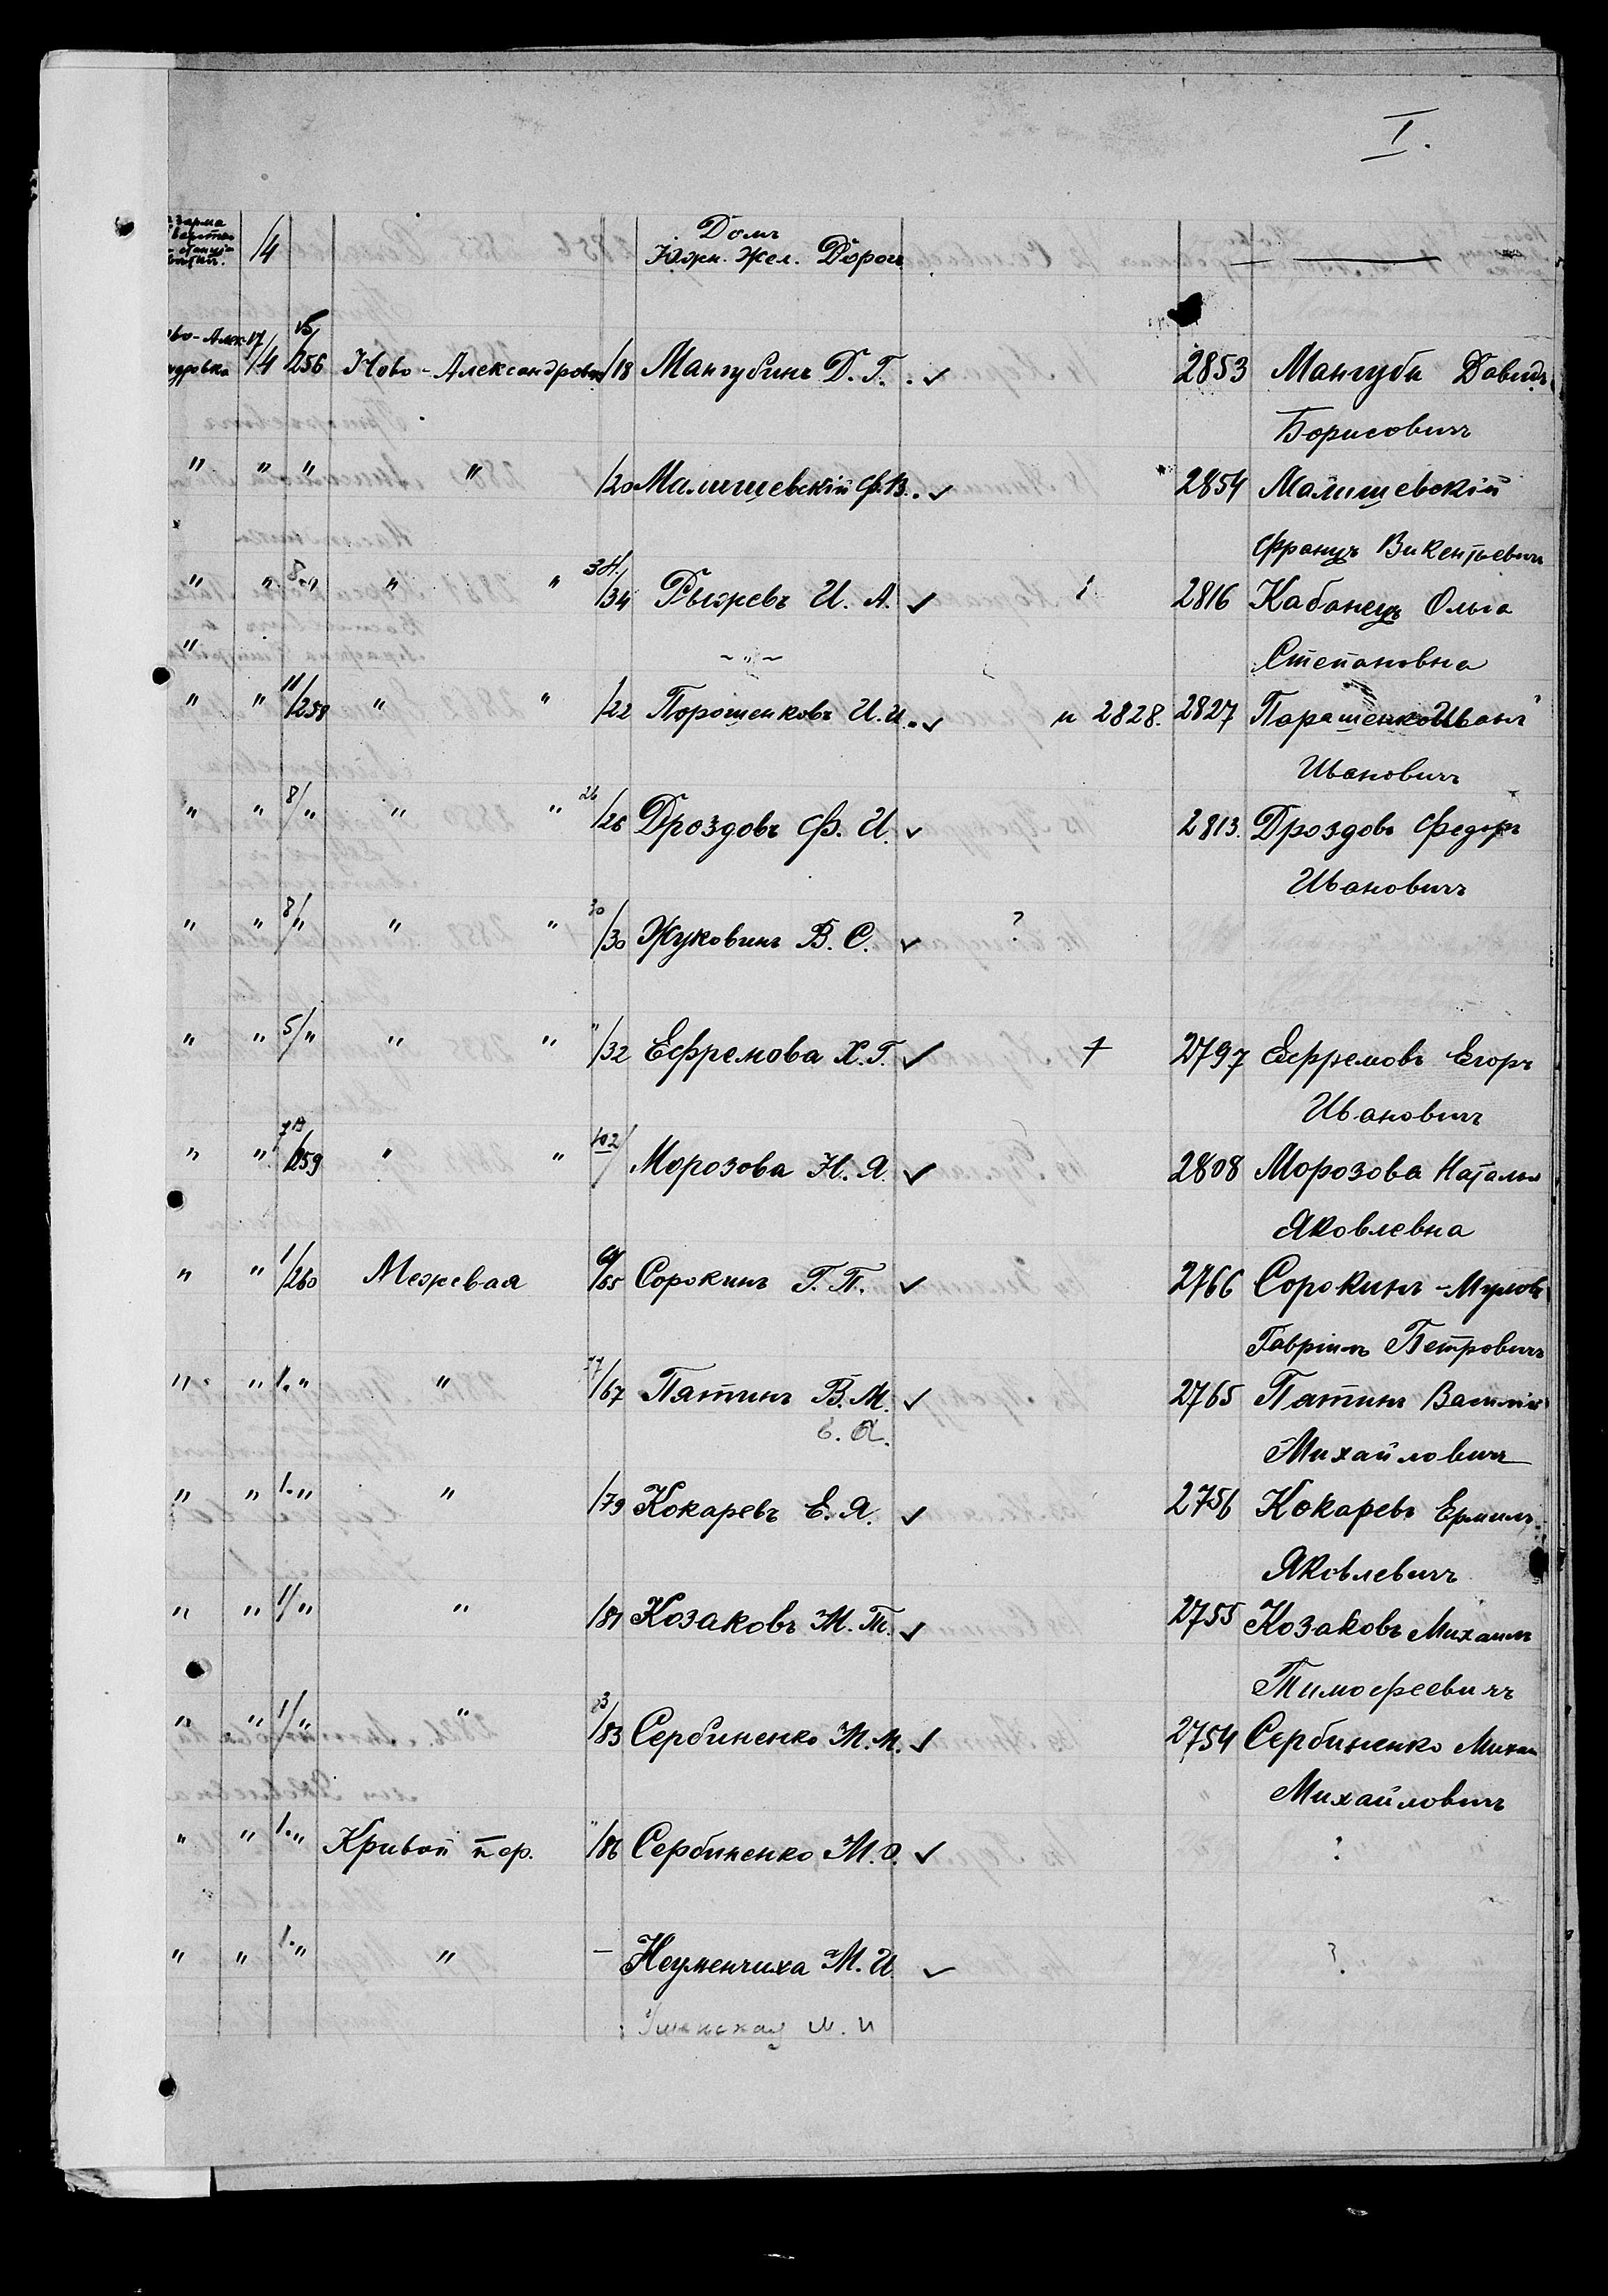 I.
14 Домъ
Южн. Жел. Дорог
17/4 15/256 Ново-Александровка /18 Мангубинъ Д. Г. ✓ 2853 Мангуби Давидъ
Борисовичъ
" " " " /20 Малишевскій Ф. В. ✓ 2854 Малишевскій
Францъ Викентьевич
" " 8 " " " 34/34 Рыжевъ И. А. ✓ 2816 Кабанецъ Ольга
" ~ " ~ Степановна
" " 11/258 " " /22 Порошенковъ И. И. ✓ и 2828. 2827 Парашенко Иванъ
Ивановичъ
" " 8/" " " 26/26 Дроздовъ Ф. И. ✓ 2813. Дроздовъ Федоръ
Ивановичъ
" " 8/" " " 30/30 Жуковинъ В. С. ✓ ?
" " 5/" " " "/32 Ефремова Х. Г. ✓ + 2797 Ефремовъ Егоръ
Ивановичъ
" " /259 " " 102/ Морозова Н. Я. ✓ 2808 Морозова Наталья
Яковлевна
" " 1/260 Межевая /65 Сорокинъ Г. П. ✓ 2766 Сорокинъ-
Гавріилъ Петровичъ
" " 1. " " /67 Пятинъ В. М. ✓ 2765 Пятинъ Василій
Е. А. Михайловичъ
" " 1. " " /79 Кокаревъ Е. Я. ✓ 2756 Кокаревъ Ермилъ
Яковлевичъ
" " 1/" " /81 Козаковъ М. Т. ✓ 2755 Козаковъ Михаилъ
Тимофеевичъ
" " 1/" " 3/83 Сербиненко М. М. ✓ 2754 Сербиненко Михаи
Михайловичъ
" " 1. " Кривой пер. "/86 Сербиненко М. О. ✓ ?
" " 1. " " – Неуменчиха М. И ✓ ?
М. И